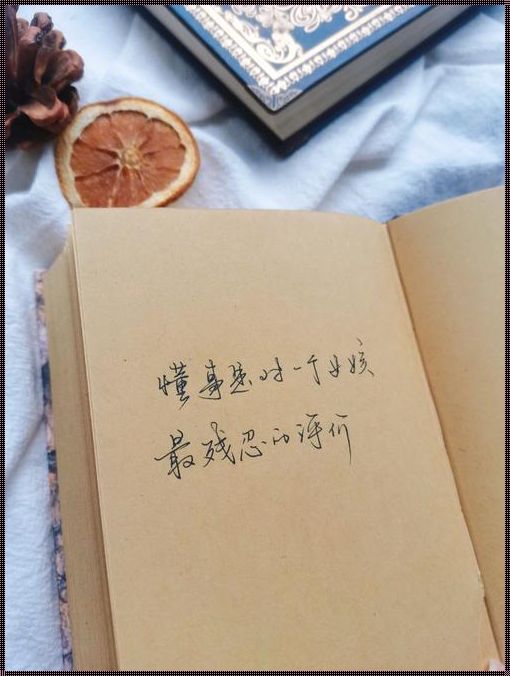 懂事是对一个女孩
最残忍的评价